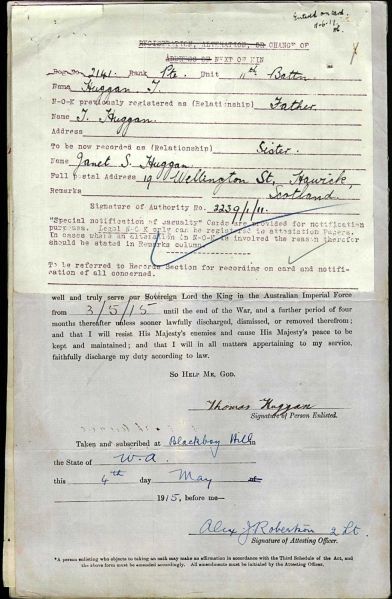 Entered on card.
REGISTRATION, ALTERATION, OR CHANGE OF
ADDRESS OF NEXT OF KIN
Reg. No 2141. Rank Pte. Unit 11th Battn
Name Huggan, T.
N-O-K previously registered as (Relationship) Father.
Name T. Huggan.
Address
To be now recorded as (Relationship) Sister.
Name Janet S. Huggan.
Full Postal Address 19 Wellington St, Hawick,
Remarks Scotland
Signature of Authority No. 2239/1/11.
"Special notification of casualty" Cards are provided for notification
purposes. Legal N-O-K only can be registered on Attestation Papers.
In cases where an alteration in N-O-K is involved the reason therefor
should be stated in Remarks column
To be referred to Records Section for recording on card and notifi-
cation of all concerned.
well and truly serve our Sovereign Lord the King in the Australian Imperial Force
from 3/5/15 until the end of the War, and a further period of four
months thereafter unless sooner lawfully discharged, dismissed, or removed therefrom;
and that I will resist His Majesty's enemies and cause His Majesty's peace to be
kept and maintained; and that I will in all matters appertaining to my service,
faithfully discharge my duty according to law.
SO HELP ME, GOD.
Thomas Huggan
Signature of Person Enlisted.
Taken and subscribed at Blackboy Hill in
the State of W.A.
this 4th day May
1915, before me—
Alex J Robertson 2 Lt.
Signature of Attesting Officer.
*A person enlisting who objects to taking an oath may make an affirmation in accordance with the Third Schedule of the Act, and
the above form must be amended accordingly. All amendments must be initialled by the Attesting Officer.